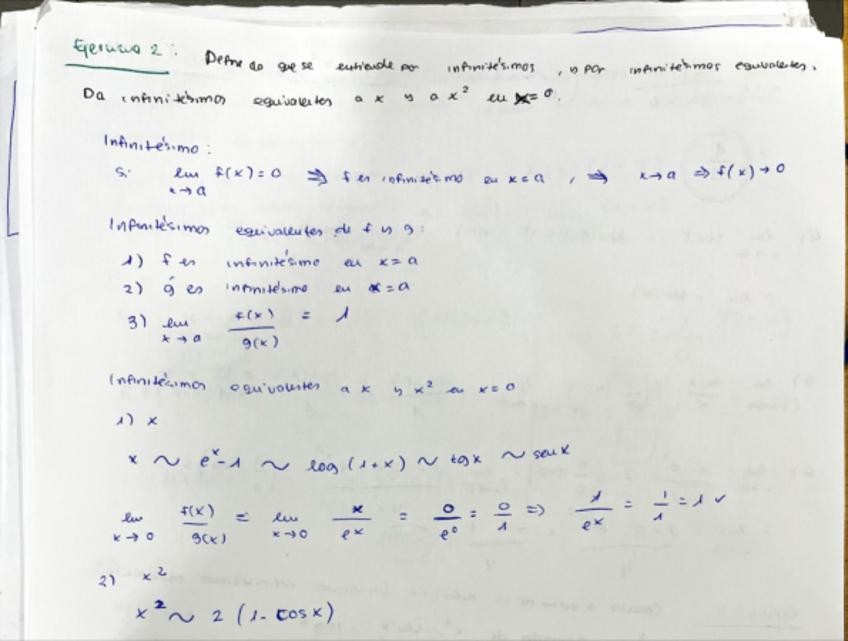 Ejercicio 2: Define lo que se entiende por infinitésimos, y por infinitésimos equivalentes.
Da infinitésimos equivalentes a x y a x² en x=0.
Infinitésimo:
Si lim x→a f(x)=0 ⇒ f es infinitésimo en x=a, ⇒ x→a ⇒ f(x)→0
Infinitésimos equivalentes de f y g:
1) f es infinitésimo en x=a
2) g es infinitésimo en x=a
3) lim x→a f(x)/g(x) = 1
Infinitésimos equivalentes a x y x² en x=0
1) x
x ~ eˣ-1 ~ log(1+x) ~ tgx ~ senx
lim x→0 f(x)/g(x) = lim x→0 x/eˣ = 0/e⁰ = 0/1 ⇒ 1/eˣ = 1/1 = 1 ✓
2) x²
x² ~ 2(1-cosx)